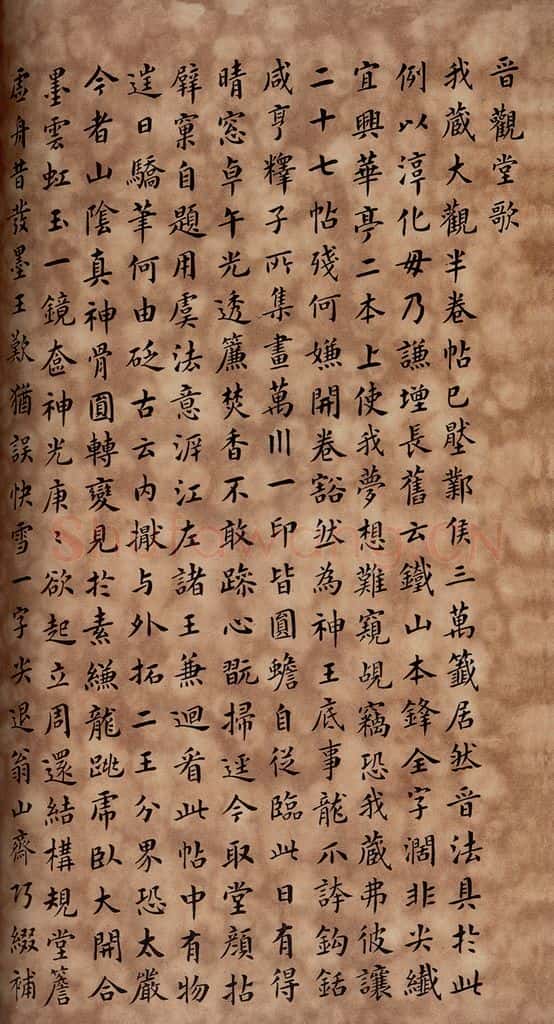 晉觀堂歌
我藏大觀半卷帖已壓鄴侯三萬籤居然晉法具於此
例以淳化毋乃謙增長舊云鐵山本鋒全字濶非尖纖
宜興華亭二本上使我夢想難窺覘竊恐我藏弗彼讓
二十七帖殘何嫌開卷豁然為神王底事龍不誇鈎銛
咸亨釋子所集畫萬川一印皆圓蟾自從臨此日有得
晴窓卓午光透簾焚香不敢跡心翫掃逕今取堂顏拈
擘窠自題用虞法意涯江左諸王兼迴看此帖中有物
日驕筆何由砭古云内擫与外拓二王分界恐太嚴
今者山陰真神骨圓轉變見於素縑龍跳虎臥大開合
墨雲虹玉一鏡奩神光庚〻欲起立周還結構規堂簷
虛舟昔發墨王歎猶誤快雪一字尖退翁山齋巧綴補